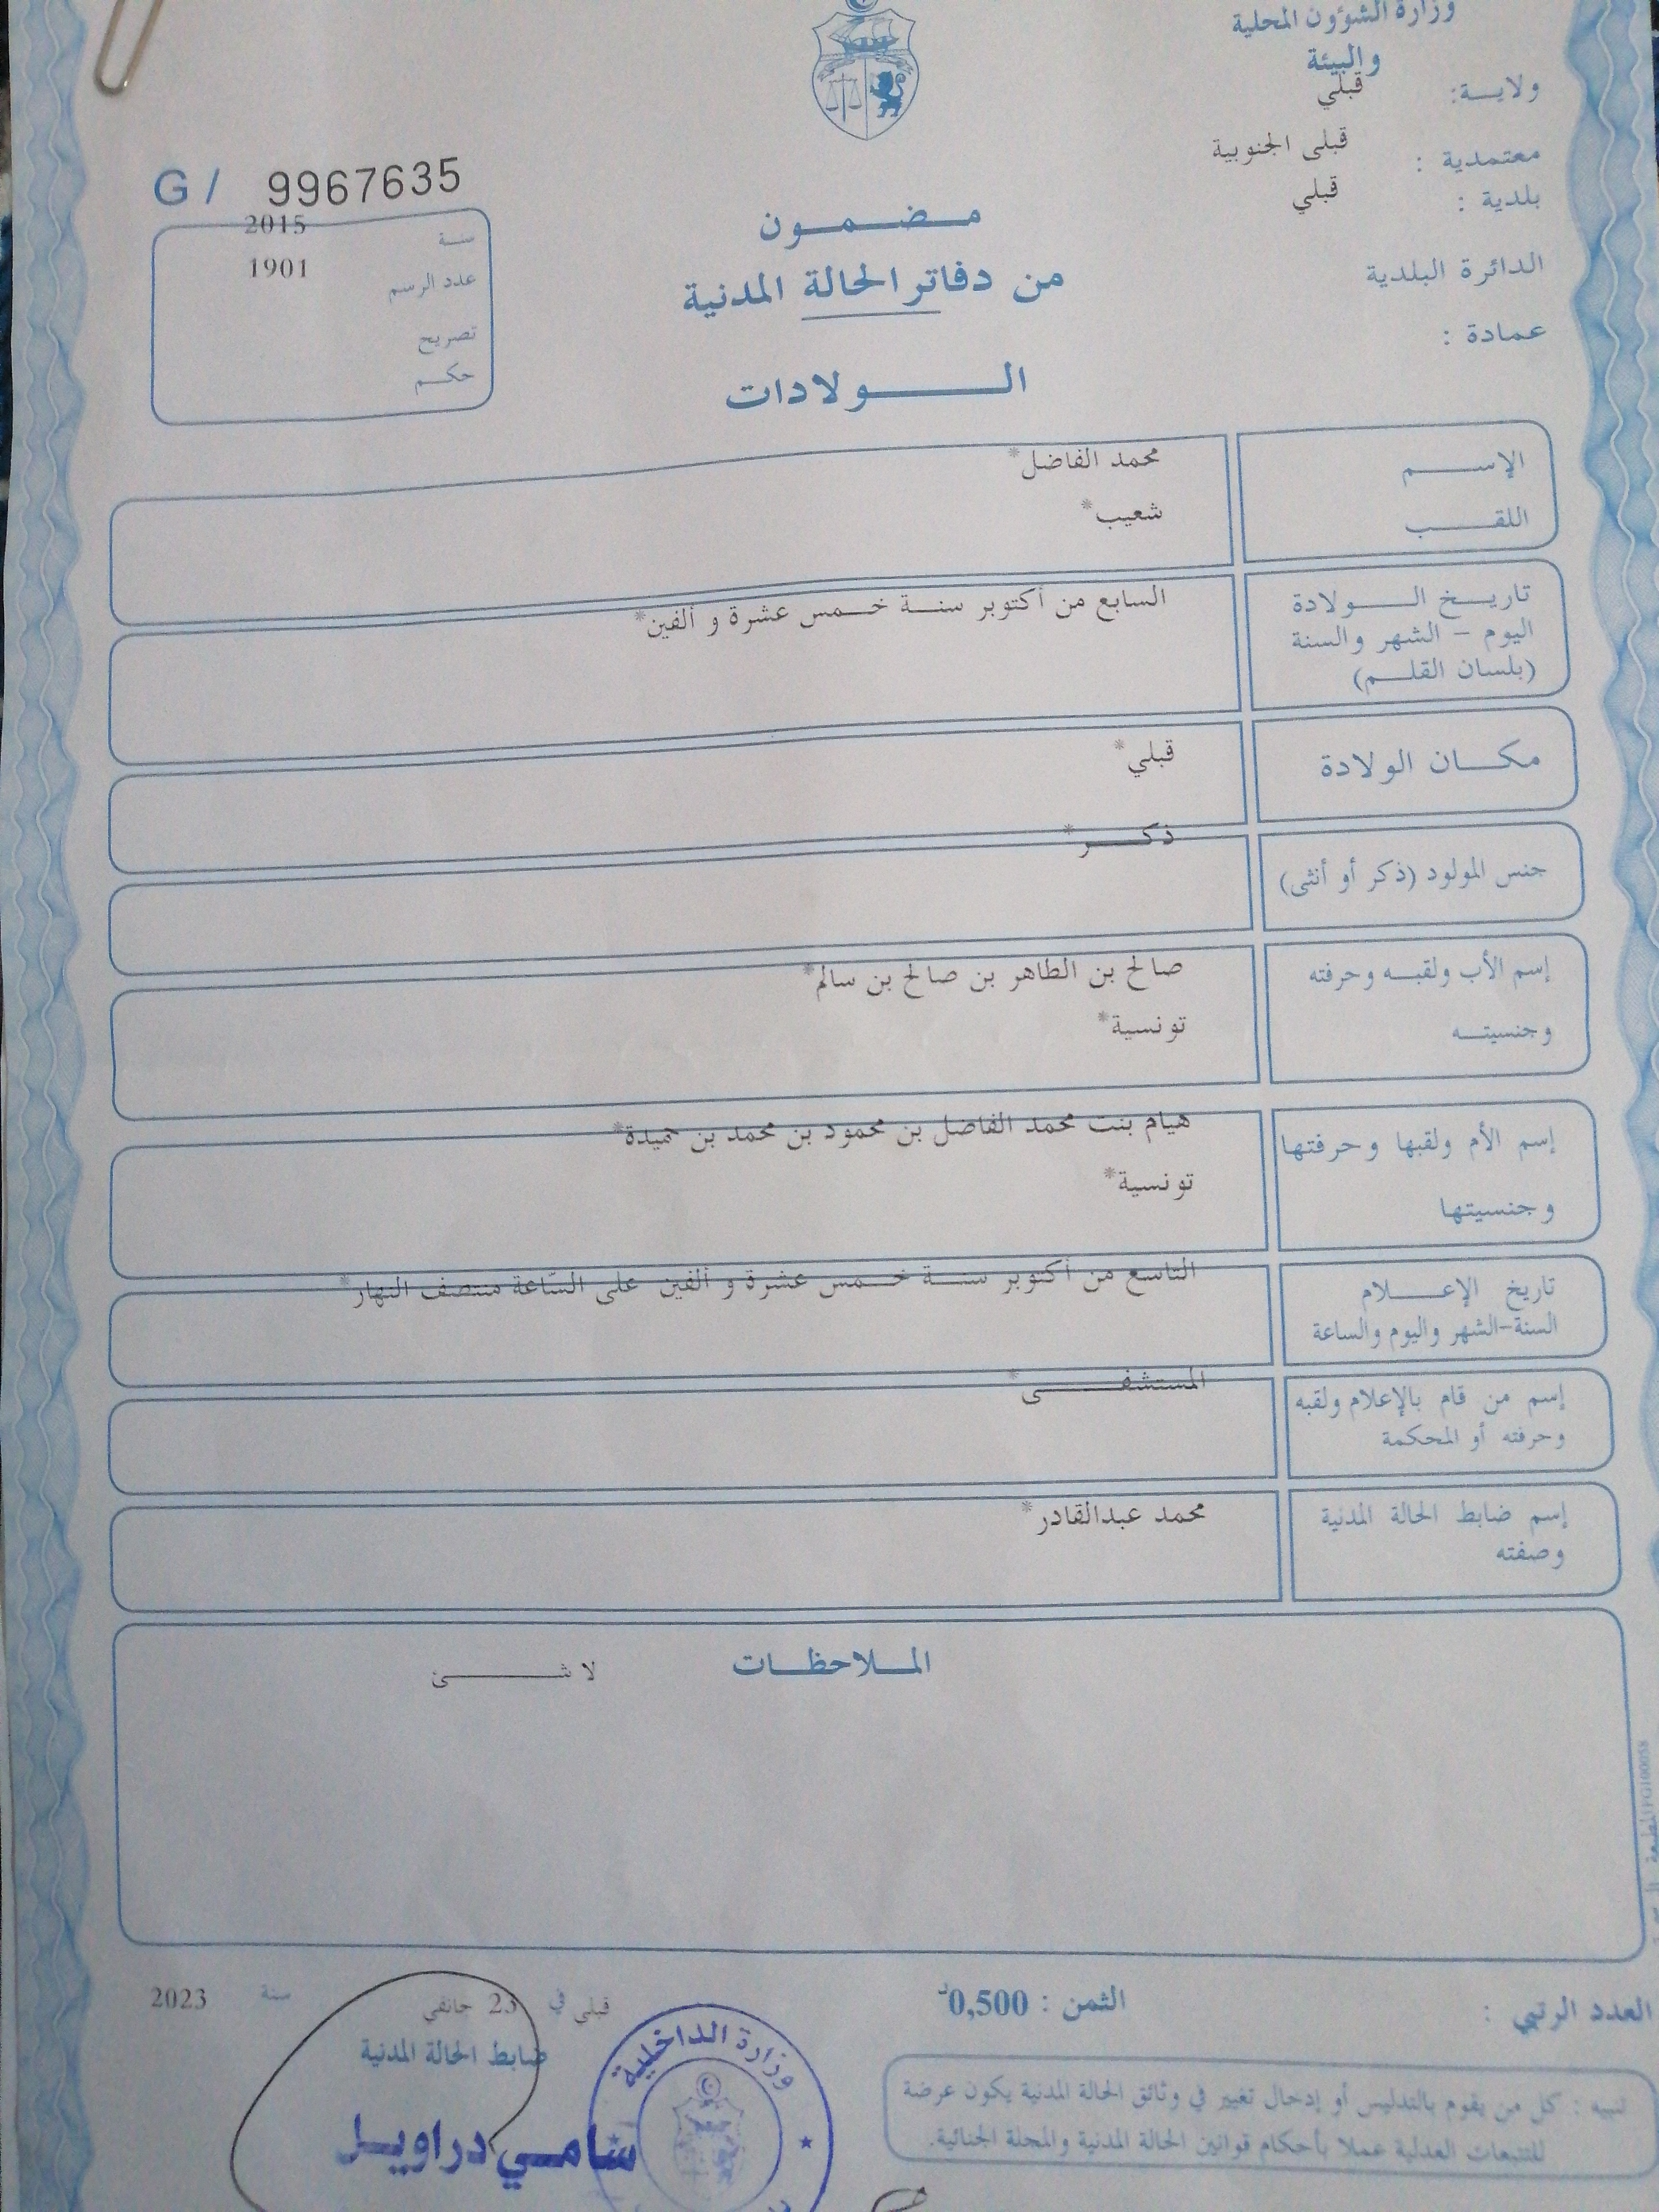 وزارة الشؤون المحلية
والبيئة
ولاية: قبلي
معتمدية : قبلى الجنوبية
بلدية : قبلي
الدائرة البلدية
عمادة :
G / 9967635
سنة 2015
عدد الرسم 1901
تصريح
حكم
مضمون
من دفاتر الحالة المدنية
الولادات
الإسم محمد الفاضل*
اللقب شعيب*
تاريخ الولادة السابع من أكتوبر سنة خمس عشرة و ألفين*
اليوم - الشهر والسنة
(بلسان القلم)
مكان الولادة قبلي*
جنس المولود (ذكر أو أنثى) ذكر*
إسم الأب ولقبه وحرفته صالح بن الطاهر بن صالح بن سالم*
وجنسيته تونسية*
إسم الأم ولقبها وحرفتها هيام بنت محمد الفاضل بن محمود بن محمد بن حميدة*
وجنسيتها تونسية*
تاريخ الإعلام التاسع من أكتوبر سنة خمس عشرة و ألفين على السّاعة منتصف النهار*
السنة-الشهر واليوم والساعة
إسم من قام بالإعلام ولقبه المستشفى*
وحرفته أو المحكمة
إسم ضابط الحالة المدنية محمد عبدالقادر*
وصفته
الملاحظات لا شئ
العدد الرتبي :
الثمن : 0,500د
قبلي في 23 جانفي سنة 2023
ضابط الحالة المدنية
سامي دراويل
وزارة الداخلية
تنبيه : كل من يقوم بالتدليس أو إدخال تغيير في وثائق الحالة المدنية يكون عرضة
للتتبعات العدلية عملا بأحكام قوانين الحالة المدنية والمجلة الجنائية.